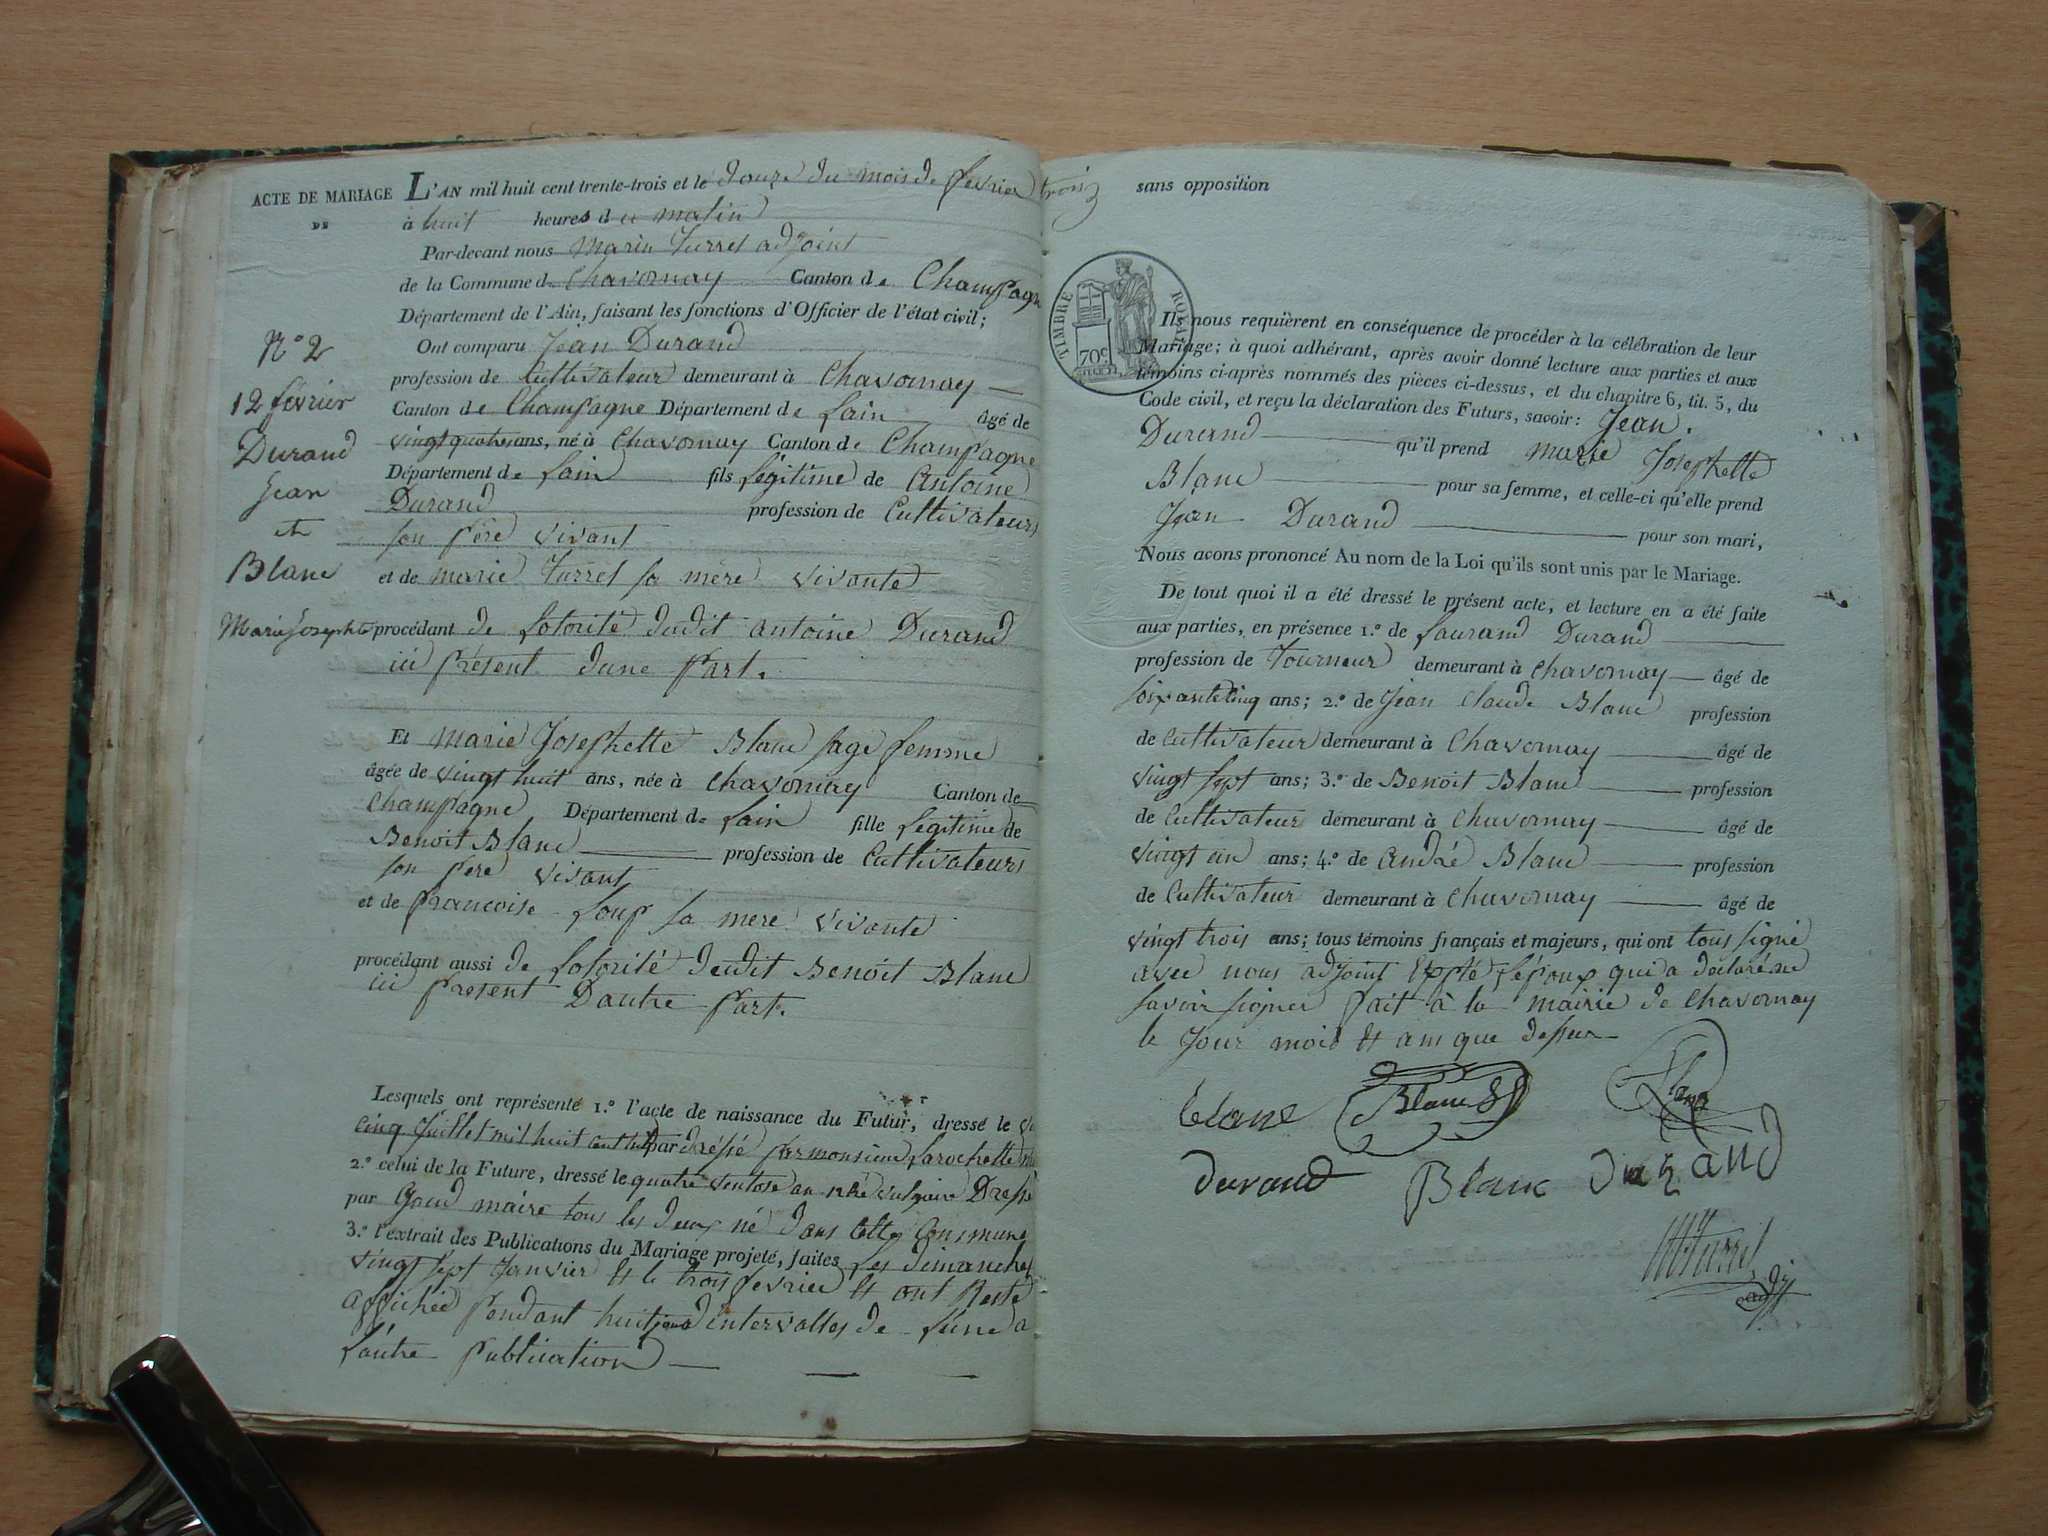 ACTE DE MARIAGE
DE
N° 2
12 février
Durand
Jean
et
Blanc
Marie Josephte
L'AN mil huit cent trente-trois et le douze du mois de fevrier
à huit heures du matin
Par-devant nous Marin Turrel adjoint
de la Commune de Chavornay Canton de Champagne
Département de l'Ain, faisant les fonctions d'Officier de l'état civil;
Ont comparu Jean Durand
profession de Cultivateur demeurant à Chavornay
Canton de Champagne Département de Lain âgé de
vingt quatre ans, né à Chavornay Canton de Champagne
Département de Lain fils légitime de Antoine
Durand profession de Cultivateurs
son père vivant
et de marie Turrel sa mére vivante
procédant de Lotorité dudit antoine Durand
ici présent dune part.
Et marie Josephette Blanc sage femme
âgée de vingt huit ans, née à Chavornay Canton de
Champagne Département de Lain fille légitime de
Benoit Blanc profession de Cultivateurs
son père vivant
et de francoise Loup sa mere vivante
procédant aussi de Lotorité dudit Benoit Blanc
ici present Dautre part.
Lesquels ont représenté 1.° l'acte de naissance du Futur, dressé le
cinq Juillet mil huit cent huit par dréssé par monsieur Larochette
2.° celui de la Future, dressé le quatre ventose an Dréssé
par maire tous les deux né dans cette Commune
3.° l'extrait des Publications du Mariage projeté, faites les dimanches
vingt sept Janvier et le trois fevrier et ont Resté
affichée pendant huit jours dintervalles de lune a
l'autre publication
trois
sans opposition
TIMBRE ROYAL
70c
Ils nous requièrent en conséquence de procéder à la célébration de leur
Mariage; à quoi adhérant, après avoir donné lecture aux parties et aux
témoins ci-après nommés des pièces ci-dessus, et du chapitre 6, tit. 5, du
Code civil, et reçu la déclaration des Futurs, savoir: Jean
Durand qu'il prend marie Josephette
Blanc pour sa femme, et celle-ci qu'elle prend
Jean Durand pour son mari,
Nous avons prononcé Au nom de la Loi qu'ils sont unis par le Mariage.
De tout quoi il a été dressé le présent acte, et lecture en a été faite
aux parties, en présence 1.° de Laurand Durand
profession de Tourneur demeurant à Chavornay âgé de
soixante cinq ans; 2.° de Jean Claude Blanc profession
de Cultivateur demeurant à Chavornay âgé de
vingt sept ans; 3.° de Benoit Blanc profession
de Cultivateur demeurant à Chavornay âgé de
vingt un ans; 4.° de andré Blanc profession
de Cultivateur demeurant à Chavornay âgé de
vingt trois ans; tous témoins français et majeurs, qui ont tous signé
avec nous adjoint Exptè lépoux qui a declaré ne
savoir signer fait à la mairie de Chavornay
le Jour mois et an que dessus
Blanc Blanc Blanc
durand Blanc Durand
Mn Turrel
adj